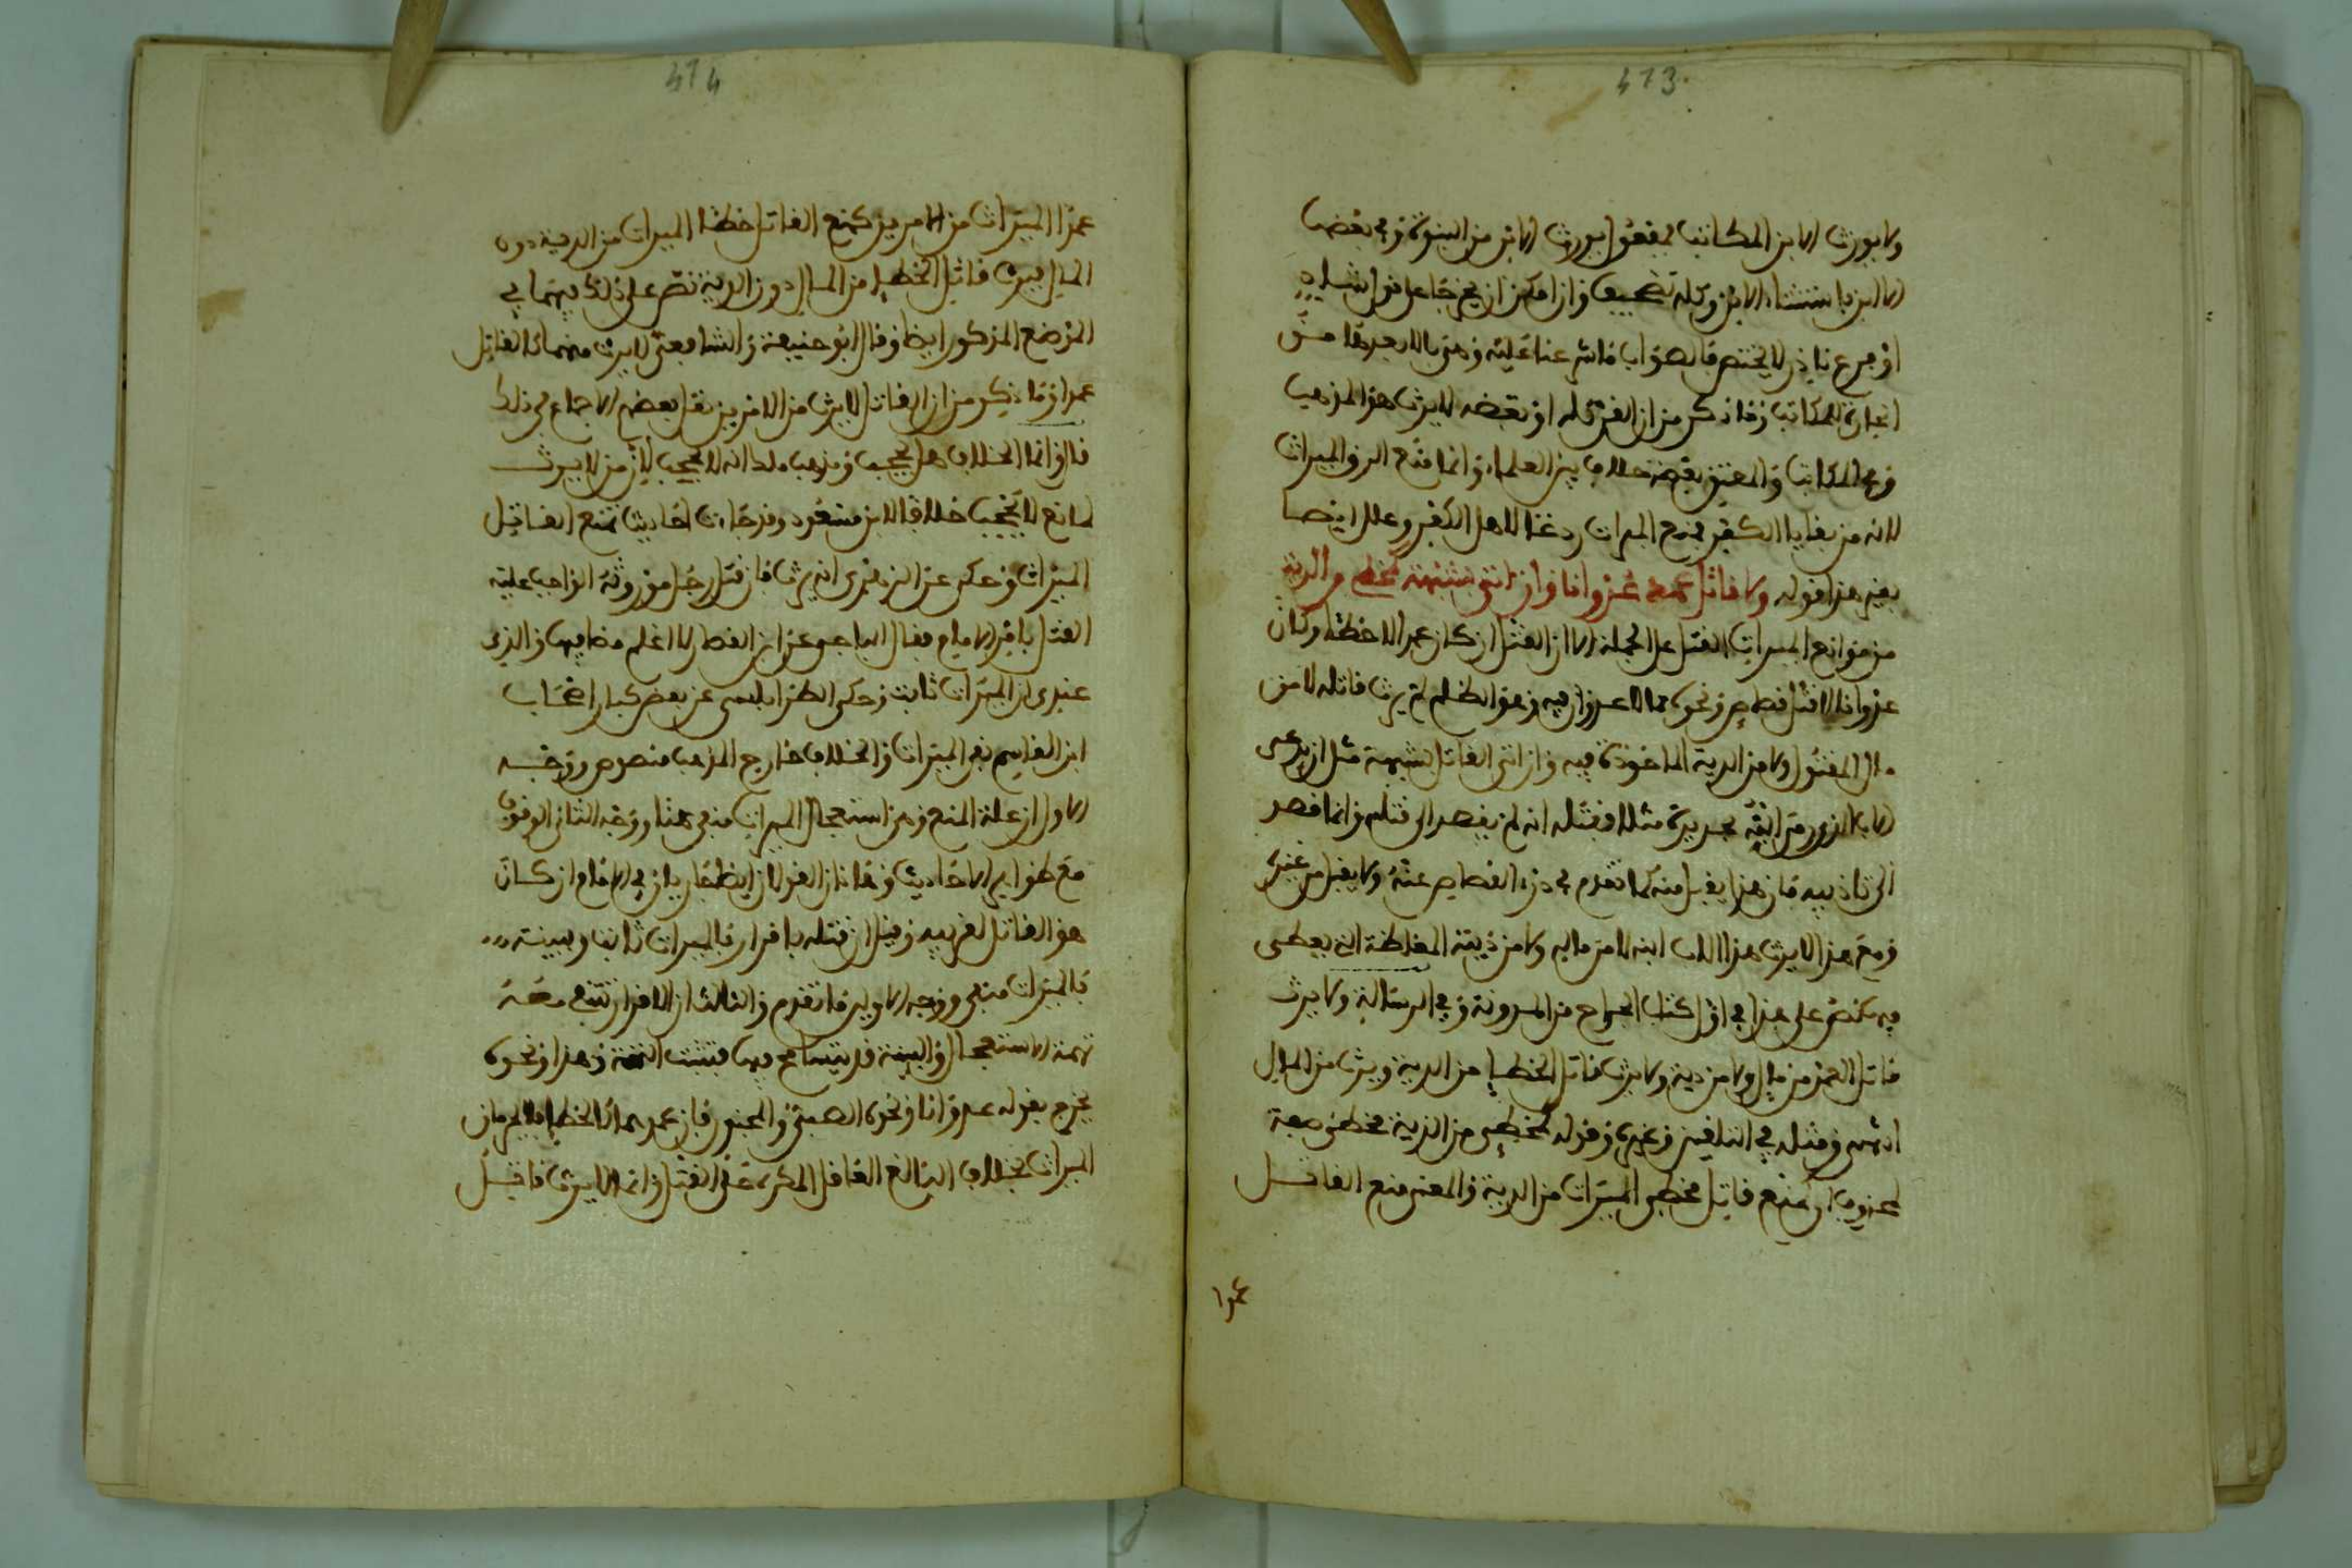 413
ولا يورث الا بن المكاتب لمفعول يورث الابن من البنوة وفي بعضها
الا ابن باستثناء الابن وكله تصحيف وان امكن ان يخرجا على قول شاذ
او فرع نادر لا يختص فالصواب ما شرحنا عليه وهي بالا بعدها مثـ
اعبارة للمكاتب وما ذكر من ان القن كله او بعضه لا يرث هو المذهب
وفي المكاتب والمعتق بعضه خلاف بين العلماء وانما منع الرق الميراث
لانه من بقايا الكفر فمنع الميراث ردعا لاهل الكفر وعلل ايضا
بغير هذا قوله ولا قاتل عمدا عدوانا وان اتى بشبهة كمخطئ من الدية
من موانع الميراث القتل على الجملة الا ان القتل ان كان عمدا لا خطئا وكان
عدوانا لا قتل قصاص ونحوه مما لا عدوان فيه وهو الظلم لم يرث قاتله لا من
مال المقتول ولا من الدية الماخوذة فيه وان اتى القاتل بشبهة مثل ان يدعى
الاب الذي رمى ابنه بحديدة مثلا فقتله انه لم يقصد الى قتله وانما قصد
الى تاديبه فان هذا يقبل منه كما تقدم في درء القصاص عنه ولا يقبل من غيره
ومع هذا لا يرث هذا الاب ابنه لا من ماله ولا من ديته المغلظة التي يعطى
فيه نص على هذا في اول كتاب الجراح من المدونة وفي الرسالة ولا يرث
قاتل العمد من مال ولا من دية ولا يرث قاتل الخطإ من الدية ويرث من المال
انتهى ومثله في التلقين وغيره وقوله كمخطئ من الدية مخطئ صفة
لمحذوف اي كمنع قاتل مخطئ الميراث من الدية والمعنى منع القاتل
عمدا
414
عمدا الميراث من الامرين كمنع القاتل خطئا الميراث من الدية دون
المال فيرث قاتل الخطإ من المال دون الدية نص على ذلك فيهما في
الموضع المذكور ايضا وقال ابو حنيفة والشافعي لا يرث منهما كالقاتل
عمدا وما ذكر من ان القاتل لا يرث من الامرين نقل بعضهم الاجماع في ذلك
قال وانما الخلاف هل يحجب ومذهب ملك انه لا يحجب لان من لا يرث
لمانع لا يحجب خلافا لابن مسعود وقد جاءت احاديث تمنع القاتل
الميراث وحكى عن البعض انه يرث فان قتل رجل موروثه الواجب عليه
القتل بامر الامام فقال الباجي عن ابن القصار لا اعلم نصا فيها والذي
عندي ان الميراث ثابت وحكى الطرابلسي عن بعض كبار اصحاب
ابن القاسم نفي الميراث والخلاف خارج المذهب منصوص ووجـه
الاول ان علة المنع وهي استعجال الميراث منفي هنا ووجه الثاني الوقوف
مع ظواهر الاحاديث وهاذان القولان ايضا جاريان في الامام ان كان
هو القاتل لقريبه وقيل ان قتله باقرار فالميراث ثابت وببينة
فالميراث منفي ووجه الاولين ما تقدم والثالث ان الاقرار تنتفي معه
تهمة الاستعجال والبينة قد يتسامح فيها فتثبت التهمة وهذا ونحوه
يخرج بقوله عدوانا ونحوه الصبي والمجنون فان عمدهما كالخطإ فلا يحرمان
الميراث بخلاف البالغ العاقل المكره على القتل وانه لا يرث قاتـل